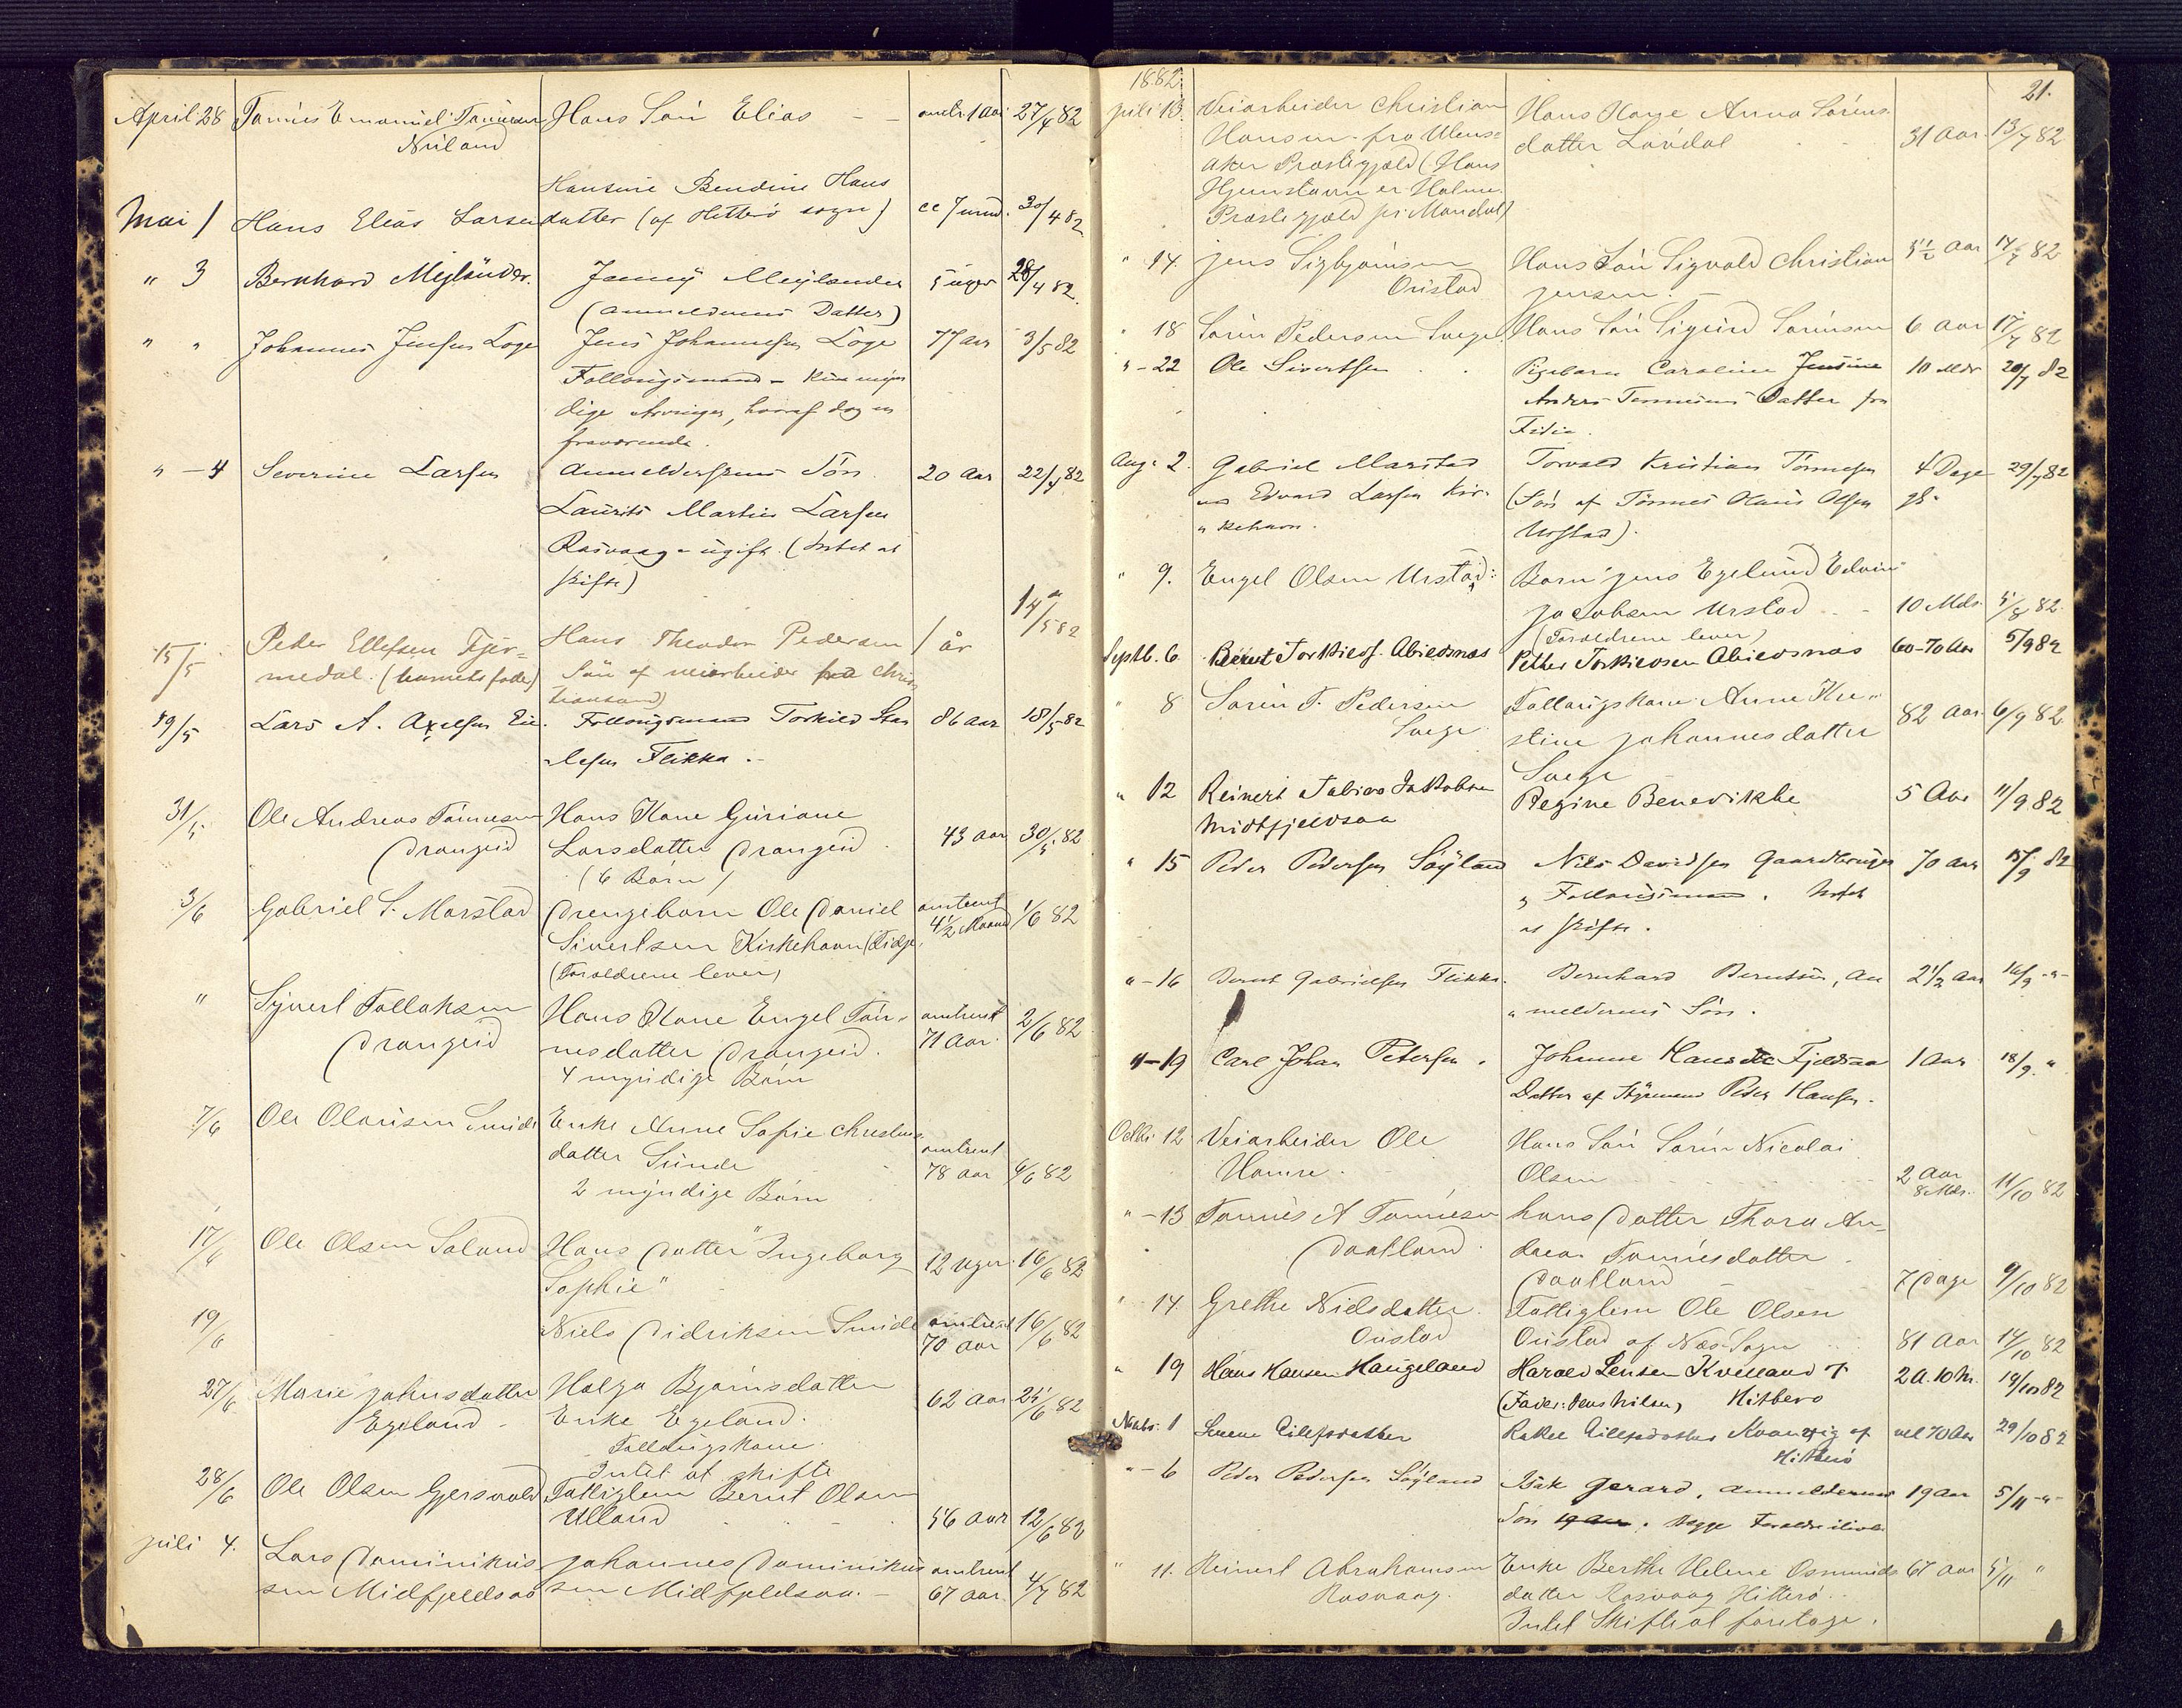 April 28 Tønnes Emanuel Tønnesen Hans Søn Elias omtr. 1 Aar 27/4 82
Niland
Hansine Bendine Hans
Mai 1 Hans Elias Larsen datter (af Hitterø sogn) 30/4 82
" 3 Bernhard Mejlænder. Jenny Mejlænder 5 uger 28/4 82.
(Anmelderens Datter)
" " Johannes Jensen Loge Jens Johannesen Loge 77 Aar 3/5 82
Follougsmand - Kun myn
dige Arvinger, hvoraf dog en
fraværende.
" - 4 Severine Larsen Anmelderskens Søn 20 Aar 22/4 82
Laurits Martin Larsen
Rasvaag - ugift. (Intet at
skifte)
15/5 Peder Ellefsen Fjer- Hans Theodor Pedersen 1 år 14/5 82
medal. (barnets fader) Søn af veiarbeider fra Chris
tiansand)
19/5 Lars A. Axelsen Eie. Follougsmand Torkild Sta 86 Aar 18/5 82
lesen Flikka.
31/5 Ole Andreas Tønnesen Hans Kone Guriane
Drangeid Larsdatter Drangeid 43 Aar 30/5 82
(6 Børn)
3/6 Gabriel S. Marstad Drengebarn Ole Daniel omtrent 4 1/2 Maaned 1/6 82
Sivertsen Kirkehavn (Fidje
(Forældrene lever)
" Syvert Tollaksen Hans Kone Engel Tøn- omtrent 2/6 82
Drangeid nesdatter Drangeid. 71 Aar.
4 myndige Børn
7/6 Ole Olausen Sunde Enke Anne Sofie Christens
datter Sunde omtrent 78 Aar 6/6 82
2 myndige Børn
17/6 Ole Olsen Soland Hans Datter "Ingeborg 12 uger 16/6 82
Sophie"
19/6 Niels Didriksen Sunde omtrent 70 Aar 16/6 82
27/6 Marie Johnsdatter Helga Bjørnsdatter 62 Aar 25/6 82
Egeland Enke Egeland.
Follougskone.
Intet at skifte
28/6 Ole Olsen Gjersvold Fattiglem Bernt Olsen
Ulland 56 Aar 12/6 82
Juli 4. Lars Dominikus- Johannes Dominikus omtrent
sen Midfjeldsaa sen Midfjeldsaa. - 67 Aar. 4/7 82
21.
1882.
Juli 13. Veiarbeider Christian Hans Kone Anna Sørens
Hansen fra datter Løvdal 31 Aar. 13/7 82
aker Præstegjæld (Hans
Hjemstavn er Holme
Præstegjæld pr. Mandal)
" 14. Jens Sigbjørnsen Hans Søn Sigvald Christian 5 1/2 Aar 14/7 82
Ørstad Jensen. -
" 18 Søren Pedersen Svege Hans Søn Sigurd Sørensen 6 Aar 17/7 82
" - 22 Ole Sivertsen Pigebarn Caroline Jensine 10 Mdr 20/7 82
Anders Tønnesens Datter fra
Fidie.
Aug. 2. Gabriel Marstad Torvald Kristian Tønnesen 4 Dage 29/7 82
Edvard Larsen Kir- (Søn af Tønnes Olaus Olsen gl.
" kehavn. Urstad).
" 9. Engel Olsen Urstad: Barn Jens Egelund Edvin
Jacobsen Urstad - 10 Mdr. 5/8 82.
(Forældrene lever)
Septb. 6 Berent Torkilds. Abildsnæs Petter Torkildsen Abildsnæs 60-70 Aar 5/9 82
" 8 Søren T. Pedersen Follougskone Anne Kri-
Svege stine Johannesdatter 82 Aar 6/9 82
Svege
" 12 Reinert Tobias Jakobsen Regine Benedikte 5 Aar 11/9 82
Midtfjeldsaa
" 15 Peder Pedersen Søyland Nils Davidsen Gaardbruger 70 Aar 15/9 82
" Follougsmand. Intet
at skifte.
" - 16 Bernt Gabrielsen Flikka. Bernhard Berntsen, An 2 1/2 Aar 16/9 - " -
" melderens Søn.
" - 19 Carl Johan Petersen. Johanne Hansen Fjeldsaa 1 Aar 18/9. "
Datter af Styrmand Peder Hansen.
Octbr 12 Veiarbeider Ole Hans Søn Søren Nicolai
Hamre. Olsen 2 Aar 8 Mdr. 11/10 82
" - 13 Tønnes A Tønnesen hans Datter Thora An-
Daatland. drea Tønnesdatter
Daatland 7 Dage 9/10 82
" 14. Grethe Nielsdatter Fattiglem Ole Olsen
Ørstad Ørstad af Næs Sogn 81 Aar 14/10 82
" 19 Hans Hansen Haugeland Harald Jensen Kvelland af 2 A. 10 M. 19/10 82
(Fader: Jens Nilsen) Hitterø
Novbr. 1 Eilefsdatter Rakel Eilefsdatter Kvanvig af vel 70 Aar 29/10 82
Hitterø
" - 6 Peder Pedersen Søyland Isak Gerard, Anmelderens 19 Aar 5/11 - " -
Søn 19 Aar. Begge Forældre ilive.
" 11. Reinert Abrahamsen Enke Berthe Helene Osmunds 67 Aar 5/11 "
Rasvaag. datter Rasvaag Hitterø.
Intet Skifte at foretage.